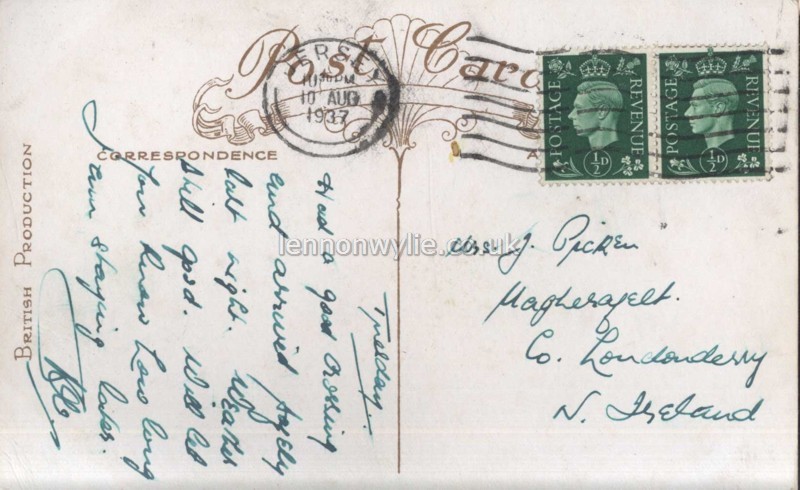 Post Card
JERSEY
10 AUG
1937
POSTAGE
REVENUE
½D
POSTAGE
REVENUE
½D
CORRESPONDENCE
BRITISH PRODUCTION
lennonwylie.co.uk
Tuesday.
Had a good crossing
and arrived safely
last night. Weather
still good. Will let
you know how long
I am staying later.
Mrs. J. Picken
Magherafelt.
Co. Londonderry
N. Ireland